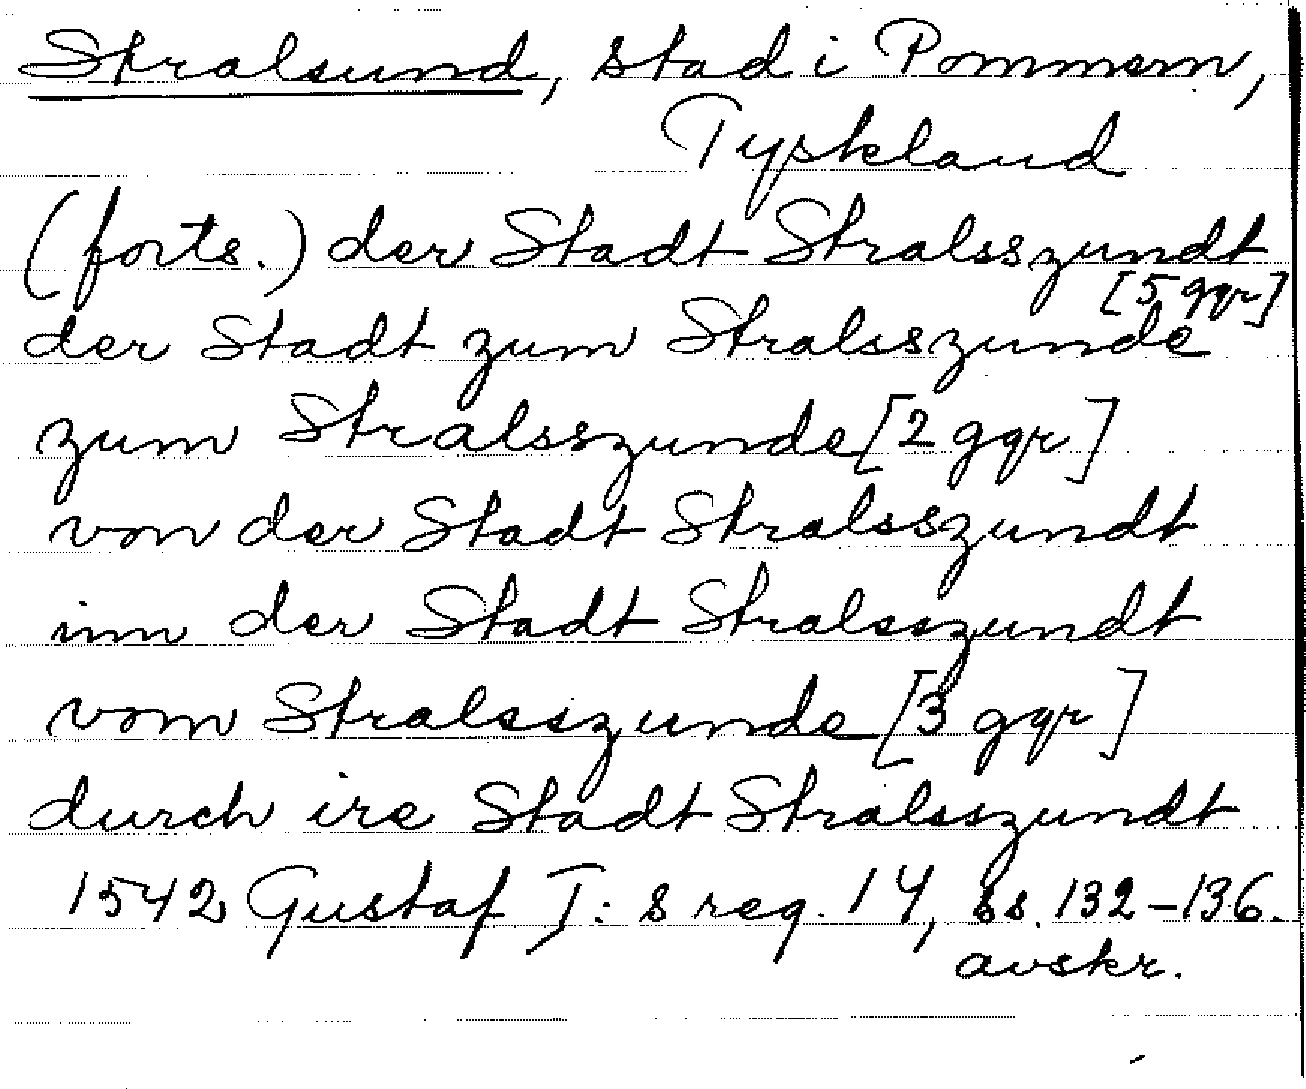 Stralsund, stad i Pommern,
Tyskland
(forts.) der Stadt Stralsszundt
[5 ggr]
der Stadt zum Stralsszunde
zum Stralsszunde [2 ggr.]
von der Stadt Stralsszundt
inn der Stadt Stralsszundt
vom Stralsszunde [3 ggr]
durch ire Stadt Stralsszundt
1542 Gustaf I:s reg. 14, ss. 132-136.
avskr.